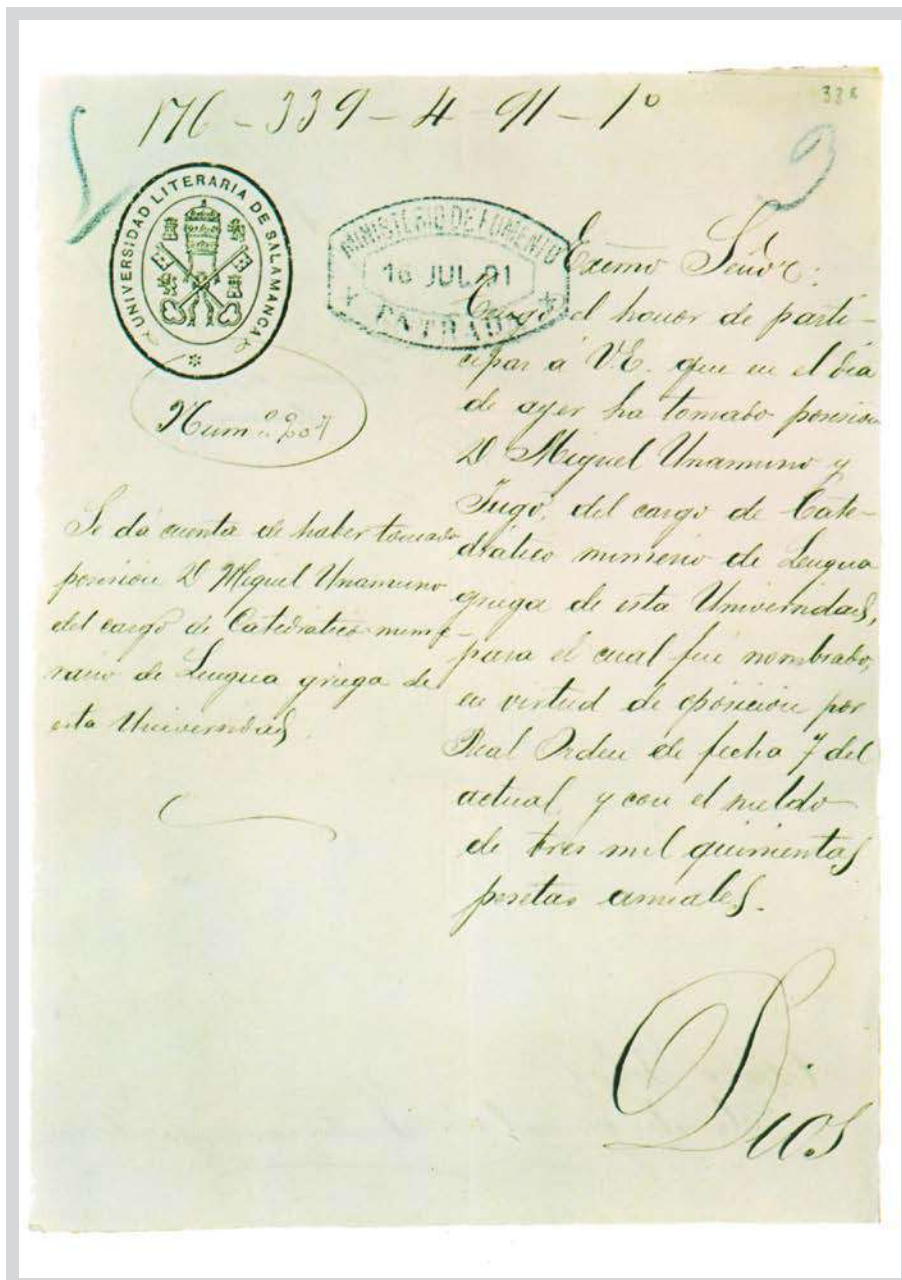 176-339-4-91-1º
UNIVERSIDAD LITERARIA DE SALAMANCA
MINISTERIO DE FOMENTO
16 JUL. 91
ENTRADA
Numº 207
Se dá cuenta de haber tomado
posesion D Miguel Unamuno
del cargo de Catedratico nume-
rario de Lengua griega de
esta Universidad
Excmo Señor:
Tengo el honor de parti-
cipar á V.E. que en el dia
de ayer ha tomado posesion
D Miguel Unamuno y
Jugo, del cargo de Cate-
drático numerio de Lengua
griega de esta Universidad,
para el cual fué nombrado,
en virtud de oposicion por
Real Orden de fecha 7 del
actual y con el sueldo
de tres mil quinientas
pesetas anuales.
Dios